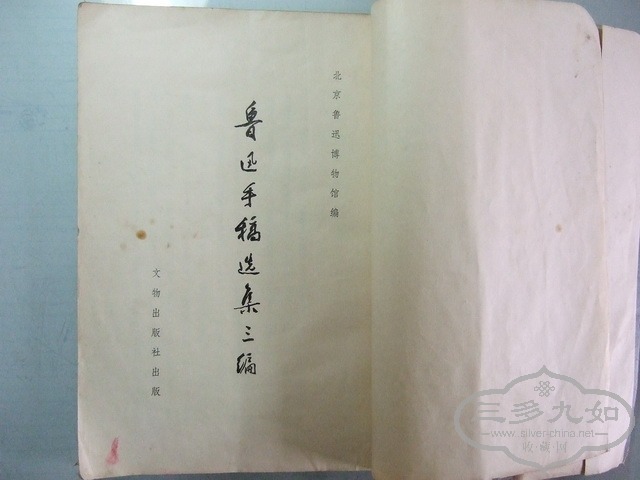 北京鲁迅博物馆编
鲁迅手稿选集三编
文物出版社出版
三多九如
www.silver-china.net
收藏网